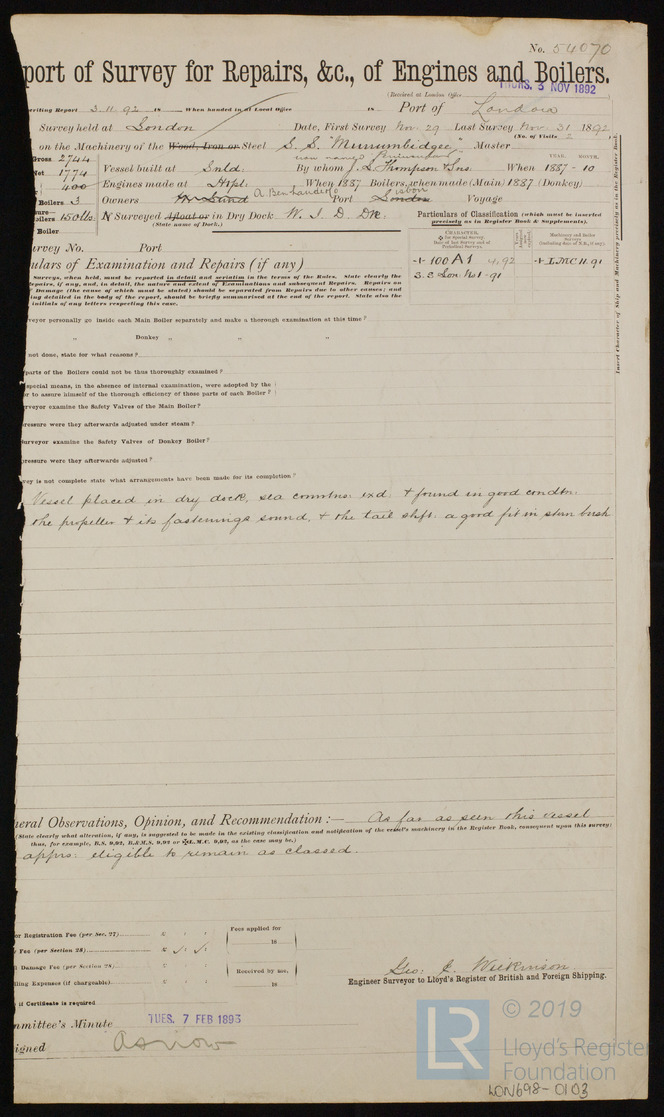 No. 54070
port of Survey for Repairs, &c., of Engines and Boilers.
THURS. 3 NOV 1892
(Received at London Office
writing Report 3.11.92 18 When handed in at Local Office 18 Port of London
Survey held at London Date, First Survey Nov. 29 Last Survey Nov. 31 1892
(No. of Visits 2
on the Machinery of the Wood, Iron or Steel S. S. "Murrumbidgee" Master
now named
Gross 2744
Net 1774
Vessel built at Snld: By whom J. L. Thompson & Sns. When 1887-10
YEAR. MONTH.
400
Engines made at Htpl: When 1887 Boilers, when made (Main) 1887 (Donkey)
Boilers 3
Owners Port London Voyage
Boilers 150 lbs.
If Surveyed Afloat or in Dry Dock W. I. D. Dk:
(State name of Dock.)
Boiler
Particulars of Classification (which must be inserted
precisely as in Register Book & Supplements).
CHARACTER.
✠ for Special Survey.
Date of last Survey and of
Periodical Surveys.
Machinery and Boiler
Surveys
(including date of N.B., if any).
+ 100 A1 4,92 + LMC 11.91
S.S. Lon. No1-91
Insert Character of Ship and Machinery precisely as in the Register Book.
urvey No. Port
ulars of Examination and Repairs (if any)
Surveys, when held, must be reported in detail and seriatim in the terms of the Rules. State clearly the
Repairs, if any, and, in detail, the nature and extent of Examinations and subsequent Repairs. Repairs on
Damage (the cause of which must be stated) should be separated from Repairs due to other causes; and
ing detailed in the body of the report, should be briefly summarised at the end of the report. State also the
initials of any letters respecting this case.
veyor personally go inside each Main Boiler separately and make a thorough examination at this time?
„ Donkey „ „ „
not done, state for what reasons?
parts of the Boilers could not be thus thoroughly examined?
special means, in the absence of internal examination, were adopted by the
or to assure himself of the thorough efficiency of those parts of each Boiler?
rveyor examine the Safety Valves of the Main Boiler?
pressure were they afterwards adjusted under steam?
surveyor examine the Safety Valves of Donkey Boiler?
pressure were they afterwards adjusted?
vey is not complete state what arrangements have been made for its completion?
Vessel placed in dry dock, sea conntns: exd. & found in good condtn:
the propeller & its fastenings sound, & the tail shft: a good fit in stern bush
neral Observations, Opinion, and Recommendation :— As far as seen this vessel
(State clearly what alteration, if any, is suggested to be made in the existing classification and notification of the vessel's machinery in the Register Book, consequent upon this survey:
thus, for example, B.S. 9,92, B.&M.S. 9,92 or ✠L.M.C. 9,92, as the case may be.)
apprs: eligible to remain as classed.
or Registration Fee (per Sec. 27) £ : :
Fees applied for
18
Fee (per Section 28) £
l Damage Fee (per Section 28) £ : :
Received by me,
lling Expenses (if chargeable) £ : :
18
Geo: C. Wilkinson
Engineer Surveyor to Lloyd's Register of British and Foreign Shipping.
if Certificate is required
mmittee's Minute TUES. 7 FEB 1893
signed As now
LR
© 2019
Lloyd's Register
Foundation
LON698-0103